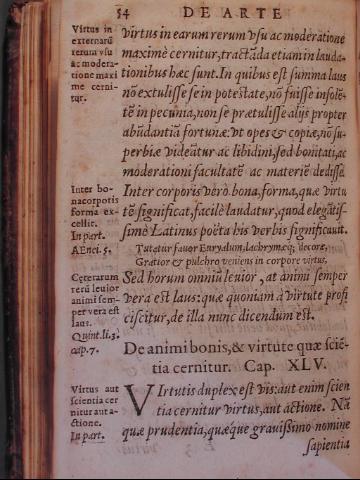 54 DE ARTE
Virtus in
externarũ
rerum vsu
ac modera-
tione maxi
me cerni-
tur.
virtus in earum rerum vsu ac moderatione
maximè cernitur, tractãda etiam in lauda-
tionibus hæc sunt. In quibus est summa laus
nõ extulisse se in potestate, nõ fuisse insolẽ-
tẽ in pecunia, non se prætulisse alijs propter
abũdantiã fortunæ: vt opes & copiæ, nõ su-
perbiæ videãtur ac libidini, sed bonitati, ac
moderationi facultatẽ ac materiẽ dedisse.
Inter bo-
nacorporis
forma ex-
cellit.
In part.
AEnei. 5.
Inter corporis verò bona, forma, quæ virtu
tẽ significat, facilè laudatur, quod elegãtis-
simè Latinus poëta his verbis significauit.
Tutatur fauor Euryalum, lachrymæq; decoræ,
Gratior & pulchro veniens in corpore virtus,
Cęterarum
rerũ leuior
animi sem-
per vera est
laus.
Quint. li. 3.
cap. 7.
Sed horum omniũ leuior, at animi semper
vera est laus: quæ quoniam à virtute profi
ciscitur, de illa nunc dicendum est.
De animi bonis, & virtute quæ sciẽ-
tia cernitur. Cap. XLV.
Virtus aut
scientia cer
nitur aut a-
ctione.
In part.
VIrtutis duplex est vis: aut enim scien
tia cernitur virtus, aut actione. Nã
quæ prudentia, quæque grauissimo nomine
sapientia